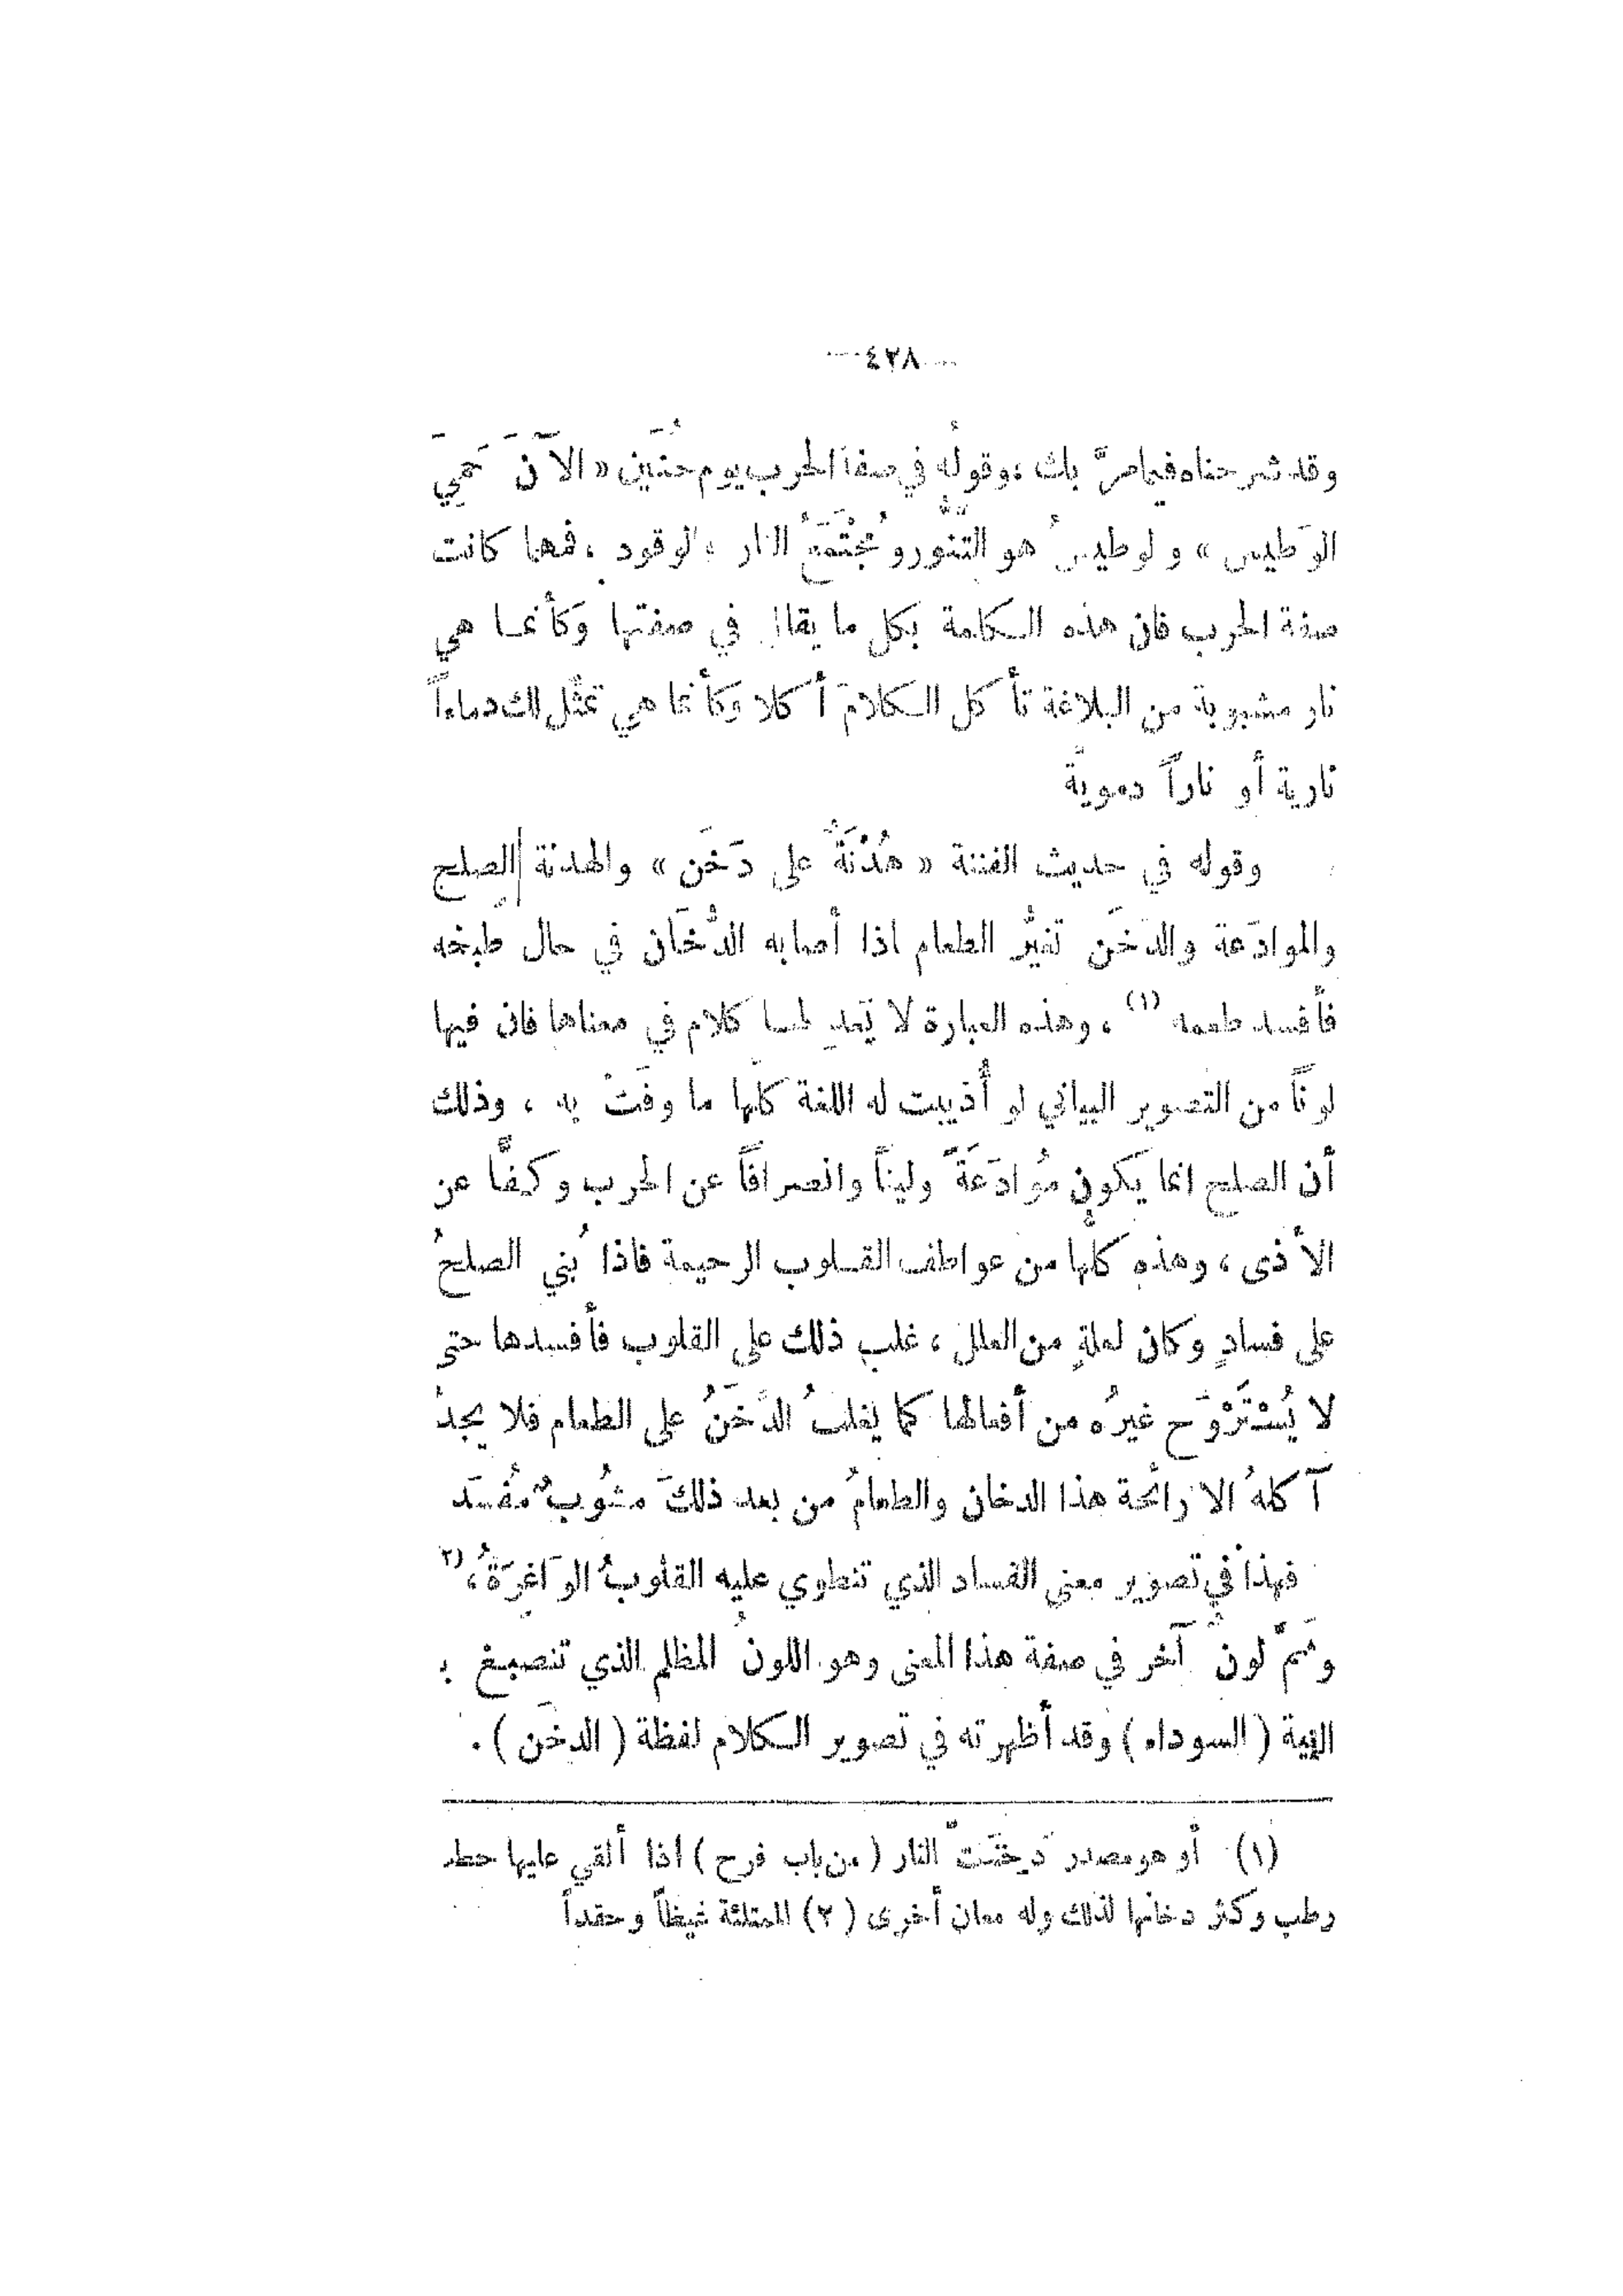 — ٤٢٨ —
وقد شرحناه فيما مرَّ بك ، وقولُه في صفة الحرب يوم حُنَين « الآنَ حَمِيَ
الوَطيس » والوطيسُ هو التَّنُّور ومُجْتَمَعُ النار والوقود ، فمهما كانت
صفة الحرب فان هذه الكلمة بكل ما يقال في صفتها وكأنما هي
نار مشبوبة من البلاغة تأكل الكلامَ أكلا وكأنما هي تمثّل لك دماءاً
نارية أو ناراً دموية
وقوله في حديث الفتنة « هُدْنَةٌ على دَخَن » والهدنة الصلح
والموادَعة والدَّخَن تغيُّر الطعام اذا أصابه الدُّخَان في حال طبخه
فأفسد طعمه (١) ، وهذه العبارة لا يَعدِلها كلام في معناها فان فيها
لوناً من التصوير البياني لو أُذيبت له اللغة كلّها ما وفَتْ به ، وذلك
أن الصلح انما يكون مُوادَعَةً وليناً وانصرافاً عن الحرب وكفّاً عن
الأذى ، وهذه كلُّها من عواطف القلوب الرحيمة فاذا بُني الصلحُ
على فسادٍ وكان لعلةٍ من العلل ، غلب ذلك على القلوب فأفسدها حتى
لا يُسْتَرْوَح غيرُه من أفعالها كما يغلبُ الدَّخَنُ على الطعام فلا يجدُ
آكلهُ الا رائحة هذا الدخان والطعامُ من بعد ذلكَ مشُوبٌ مُفْسَد
فهذا في تصوير معنى الفساد الذي تنطوي عليه القلوبُ الوَاغِرَةُ ، (٢
وثَمَّ لونٌ آخر في صفة هذا المعنى وهو اللونُ المظلم الذي تنصبغ به
النية ( السوداء ) وقد أظهرته في تصوير الكلام لفظة ( الدخَن ) .
(١) أو هو مصدر دَخِنَت النار ( من باب فرح ) اذا ألقي عليها حطب
رطب وكثر دخانها لذلك وله معان أخرى (٢) الممتلئة غيظاً وحقداً